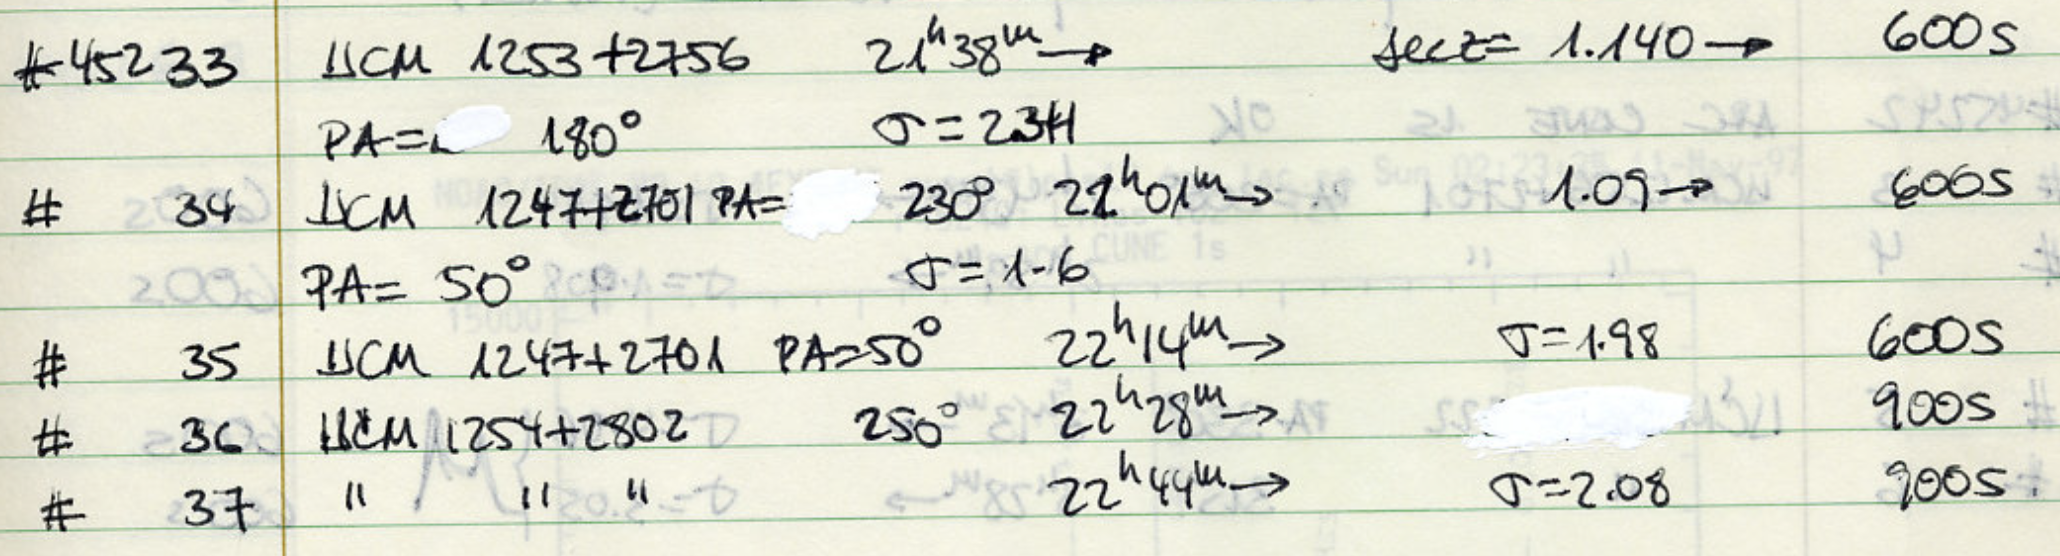 #45233 UCM 1253+2756 21ʰ38ᵐ→ secz= 1.140→ 600s
PA= 180° σ=2.34
# 34 UCM 1247+2701 PA= 230° 22ʰ01ᵐ→ 1.09→ 600s
PA= 50° σ=1.6
# 35 UCM 1247+2701 PA=50° 22ʰ14ᵐ→ σ=1.98 600s
# 36 UCM 1254+2802 250° 22ʰ28ᵐ→ 900s
# 37 " " " 22ʰ44ᵐ→ σ=2.08 900s